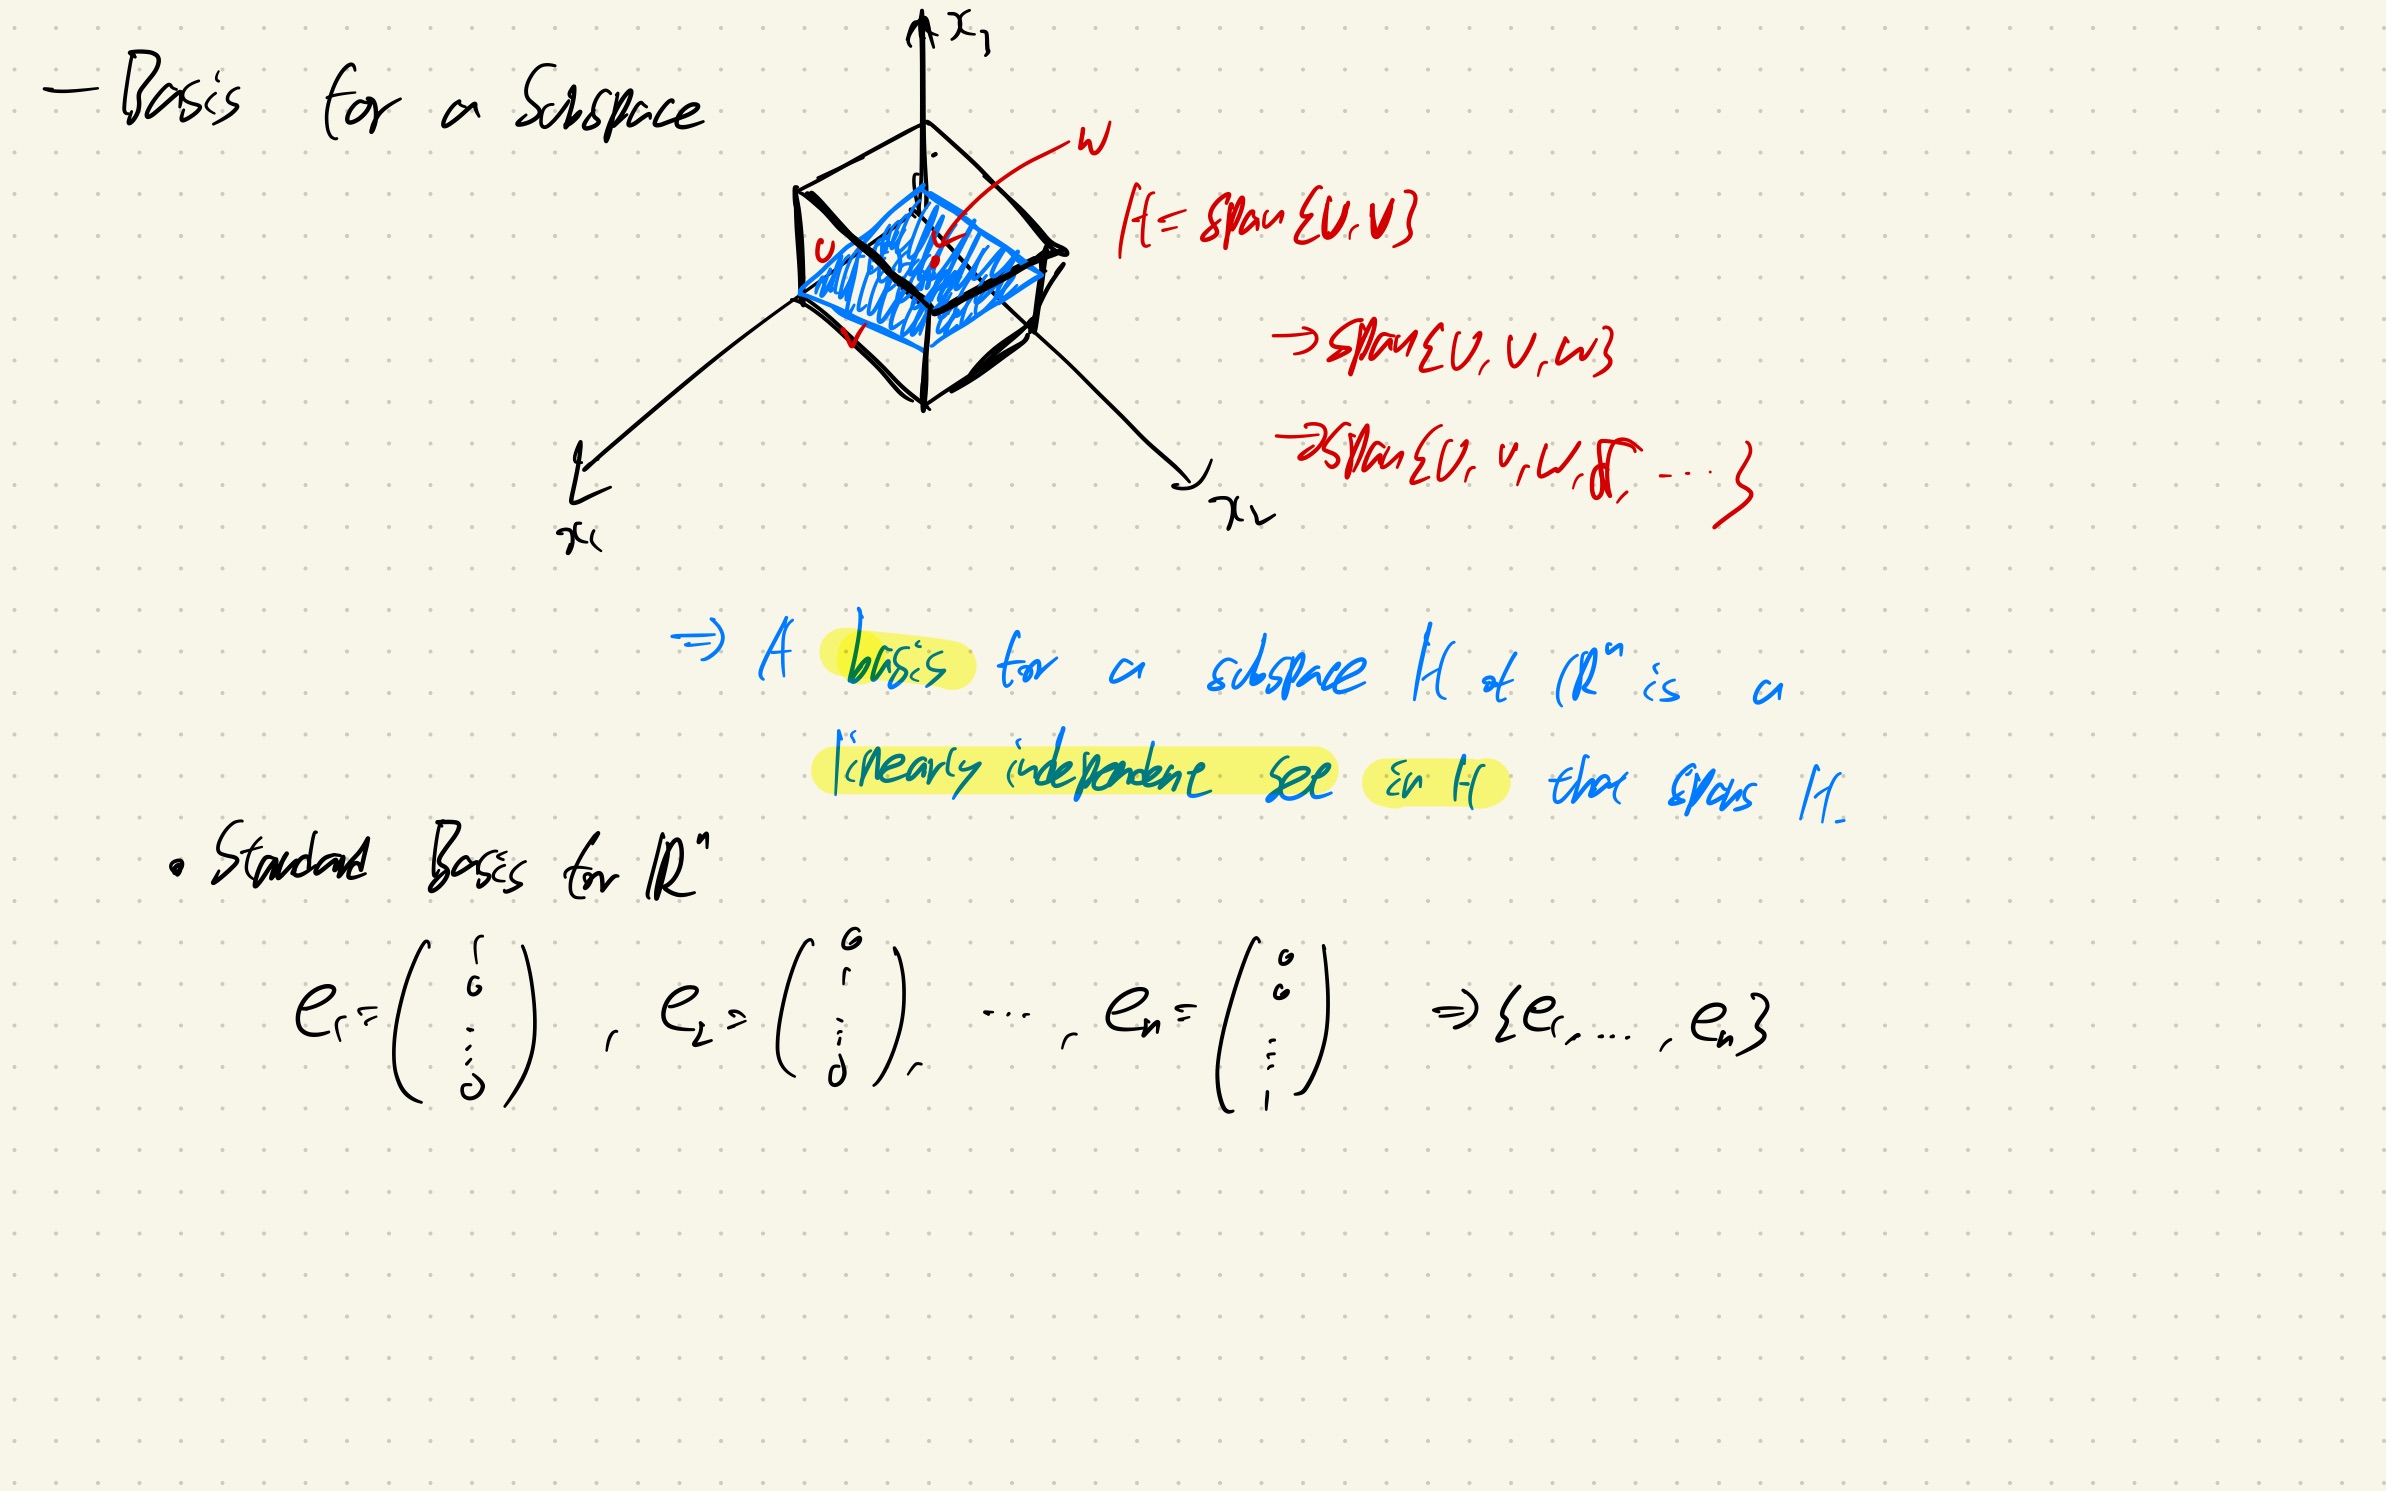 — Basis for a Subspace
x3
w
H = span{u, v}
u
→ span{u, v, w}
v
→ span{u, v, w, ... }
x1
x2
⇒ A basis for a subspace H of ℝⁿ is a
linearly independent set in H that spans H.
• Standard Basis for ℝⁿ
e1 = (1 0 ⋮ 0), e2 = (0 1 ⋮ 0), ..., en = (0 0 ⋮ 1) ⇒ {e1, ..., en}